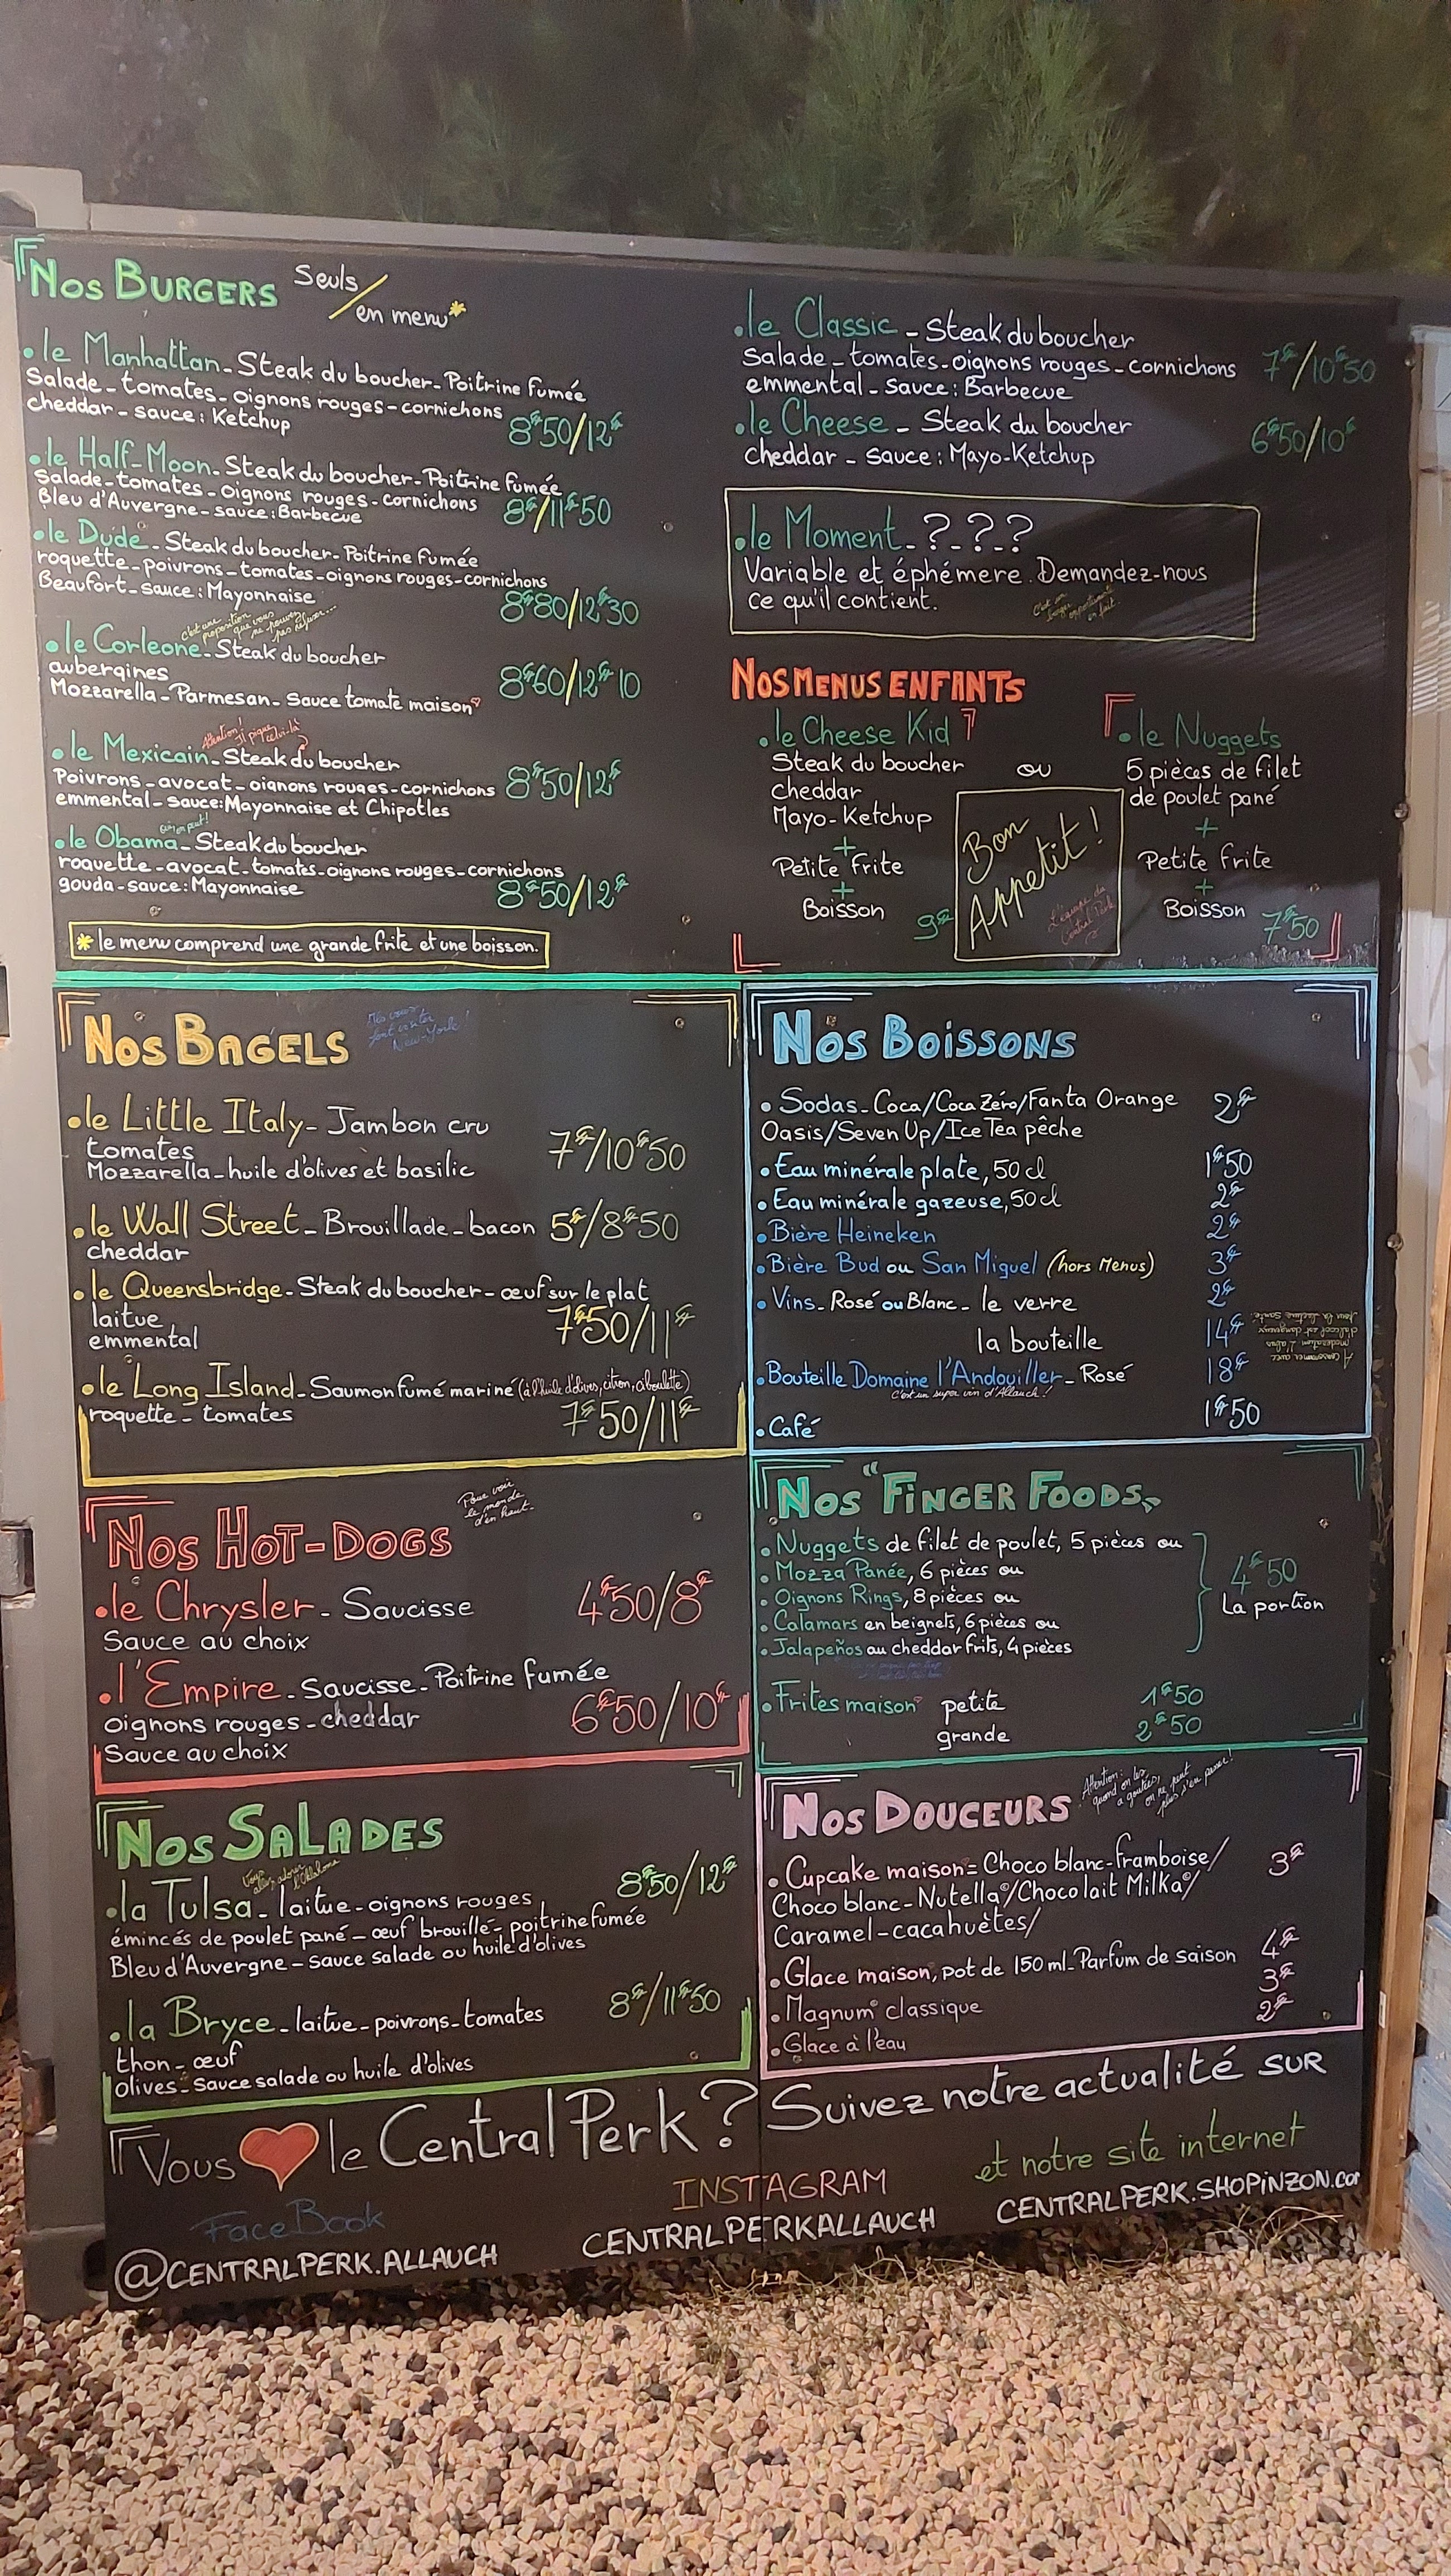 Nos BURGERS Seuls
/en menu*
.le Manhattan - Steak du boucher - Poitrine fumée
Salade - tomates - oignons rouges - cornichons
cheddar - sauce : Ketchup 8€50/12€
.le Half-Moon - Steak du boucher - Poitrine fumée
Salade - tomates - oignons rouges - cornichons
Bleu d'Auvergne - sauce : Barbecue 8€/11€50
.le Dude - Steak du boucher - Poitrine fumée
roquette - poivrons - tomates - oignons rouges - cornichons
Beaufort - sauce : Mayonnaise
8€80/12€30
c'est une proposition que vous ne pouvez pas refuser...
.le Corleone - Steak du boucher
aubergines
Mozzarella - Parmesan - Sauce tomate maison 8€60/12€10
Attention! il pique celui-là
.le Mexicain - Steak du boucher
Poivrons - avocat - oignons rouges - cornichons 8€50/12€
emmental - sauce : Mayonnaise et Chipotles
.le Obama - Steak du boucher
roquette - avocat - tomates - oignons rouges - cornichons
gouda - sauce : Mayonnaise 8€50/12€
* le menu comprend une grande frite et une boisson.
.le Classic - Steak du boucher
Salade - tomates - oignons rouges - cornichons 7€/10€50
emmental - sauce : Barbecue
.le Cheese - Steak du boucher 6€50/10€
cheddar - sauce : Mayo-Ketchup
.le Moment - ? - ? - ?
Variable et éphémere. Demandez-nous
ce qu'il contient.
C'est un burger opportuniste en fait.
NOS MENUS ENFANTS
.le Cheese Kid
Steak du boucher
cheddar
Mayo-Ketchup
+
Petite frite
+
Boisson 9€
ou
Bon
Appetit !
L'équipe du Central Perk
.le Nuggets
5 pièces de filet
de poulet pané
+
Petite frite
+
Boisson 7€50
NOS BAGELS
Ils vous font visiter New-York !
.le Little Italy - Jambon cru
tomates 7€/10€50
Mozzarella - huile d'olives et basilic
.le Wall Street - Brouillade - bacon 5€/8€50
cheddar
.le Queensbridge - Steak du boucher - œuf sur le plat
laitue 7€50/11€
emmental
.le Long Island - Saumon fumé mariné (à l'huile d'olives, citron, ciboulette)
roquette - tomates 7€50/11€
NOS BOISSONS
. Sodas - Coca/Coca Zéro/Fanta Orange 2€
Oasis/Seven Up/Ice Tea pêche
. Eau minérale plate, 50 cl 1€50
. Eau minérale gazeuse, 50 cl 2€
. Bière Heineken 2€
. Bière Bud ou San Miguel (hors Menus) 3€
. Vins - Rosé ou Blanc - le verre 2€
la bouteille 14€
A consommer avec modération L'abus d'alcool est dangereux pour la
. Bouteille Domaine l'Andouiller - Rosé 18€
C'est un super vin d'Allauch !
. Café 1€50
NOS HOT-DOGS
Pour voir
le monde
d'en haut.
.le Chrysler - Saucisse 4€50/8€
Sauce au choix
.l'Empire - Saucisse - Poitrine fumée
oignons rouges - cheddar 6€50/10€
Sauce au choix
NOS "FINGER FOODS"
. Nuggets de filet de poulet, 5 pièces ou
. Mozza Panée, 6 pièces ou
. Oignons Rings, 8 pièces ou
. Calamars en beignets, 6 pièces ou
. Jalapeños au cheddar frits, 4 pièces
4€50
La portion
. Frites maison petite 1€50
grande 2€50
NOS SALADES
Vous allez adorer l'Oklahoma
.la Tulsa - laitue - oignons rouges 8€50/12€
émincés de poulet pané - œuf brouillé - poitrine fumée
Bleu d'Auvergne - sauce salade ou huile d'olives
.la Bryce - laitue - poivrons - tomates 8€/11€50
thon - œuf
olives - Sauce salade ou huile d'olives
NOS DOUCEURS
Attention : quand on les a goutées, on ne peut plus s'en passer !
. Cupcake maison = Choco blanc - framboise/ 3€
Choco blanc - Nutella©/Choco lait Milka©/
Caramel - cacahuètes/
. Glace maison, pot de 150 ml - Parfum de saison 4€
. Magnum© classique 3€
. Glace à l'eau 2€
Vous ♥ le Central Perk ? Suivez notre actualité SUR
FaceBook
@CENTRALPERK.ALLAUCH
INSTAGRAM
CENTRALPERKALLAUCH
et notre site internet
CENTRALPERK.SHOPINZON.com